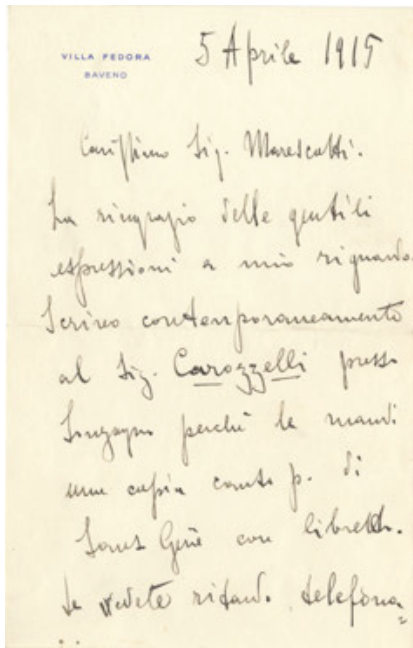 VILLA FEDORA
BAVENO
5 Aprile 1915
Carissimo Sig. Marescotti.
La ringrazio delle gentili
espressioni a mio riguardo.
Scrivo contemporaneamente
al Sig. Carozzelli presso
Sonzogno perchè le mandi
una copia canto p. di
Sans Gêne con libretto.
Se vedete ritardo telefona=